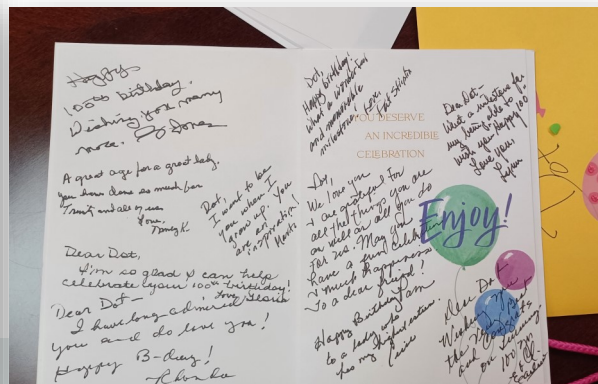 Happy
100th birthday.
Wishing you many
more. Jones
A great age for a great lady.
you have done so much for
Trinity and all of us.
Love,
Nancy K.
Dot,
I want to be
you when I
grow up. You
are an
inspiration!
Dear Dot,
I'm so glad I can help
celebrate your 100th birthday!
Love,
Dear Dot—
I have long admired
you and do love you!
Happy B-day!
Rhonda
Dot,
Happy birthday!
What a wonderful
and memorable
milestone!
Love,
YOU DESERVE
AN INCREDIBLE
CELEBRATION
Dear Dot—
What a milestone for
my being able to
wish you happy 100
Love you,
Dot,
We love you
& are grateful for
all the things you are
as well as all you do
for us. May you
have a fun celebration
& much happiness
to a dear friend!
Pam
Enjoy!
Happy Birthday
to a lady who
has my highest esteem.
Dear Dot
Wishing you
the
and
on turning
100